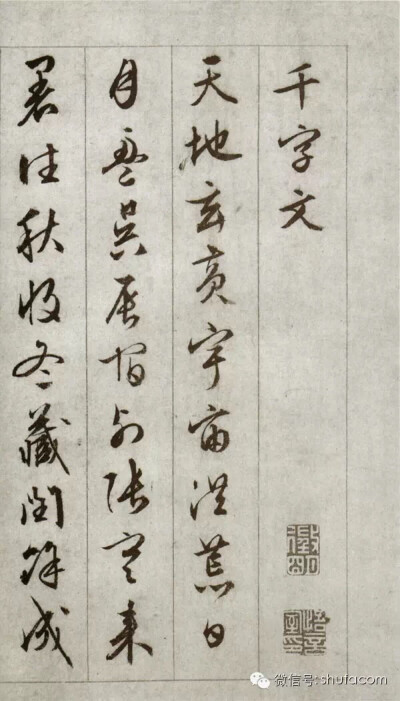 千字文
天地玄黄宇宙洪荒日
月盈昃辰宿列张寒来
暑往秋收冬藏闰馀成
微信号: shufacom